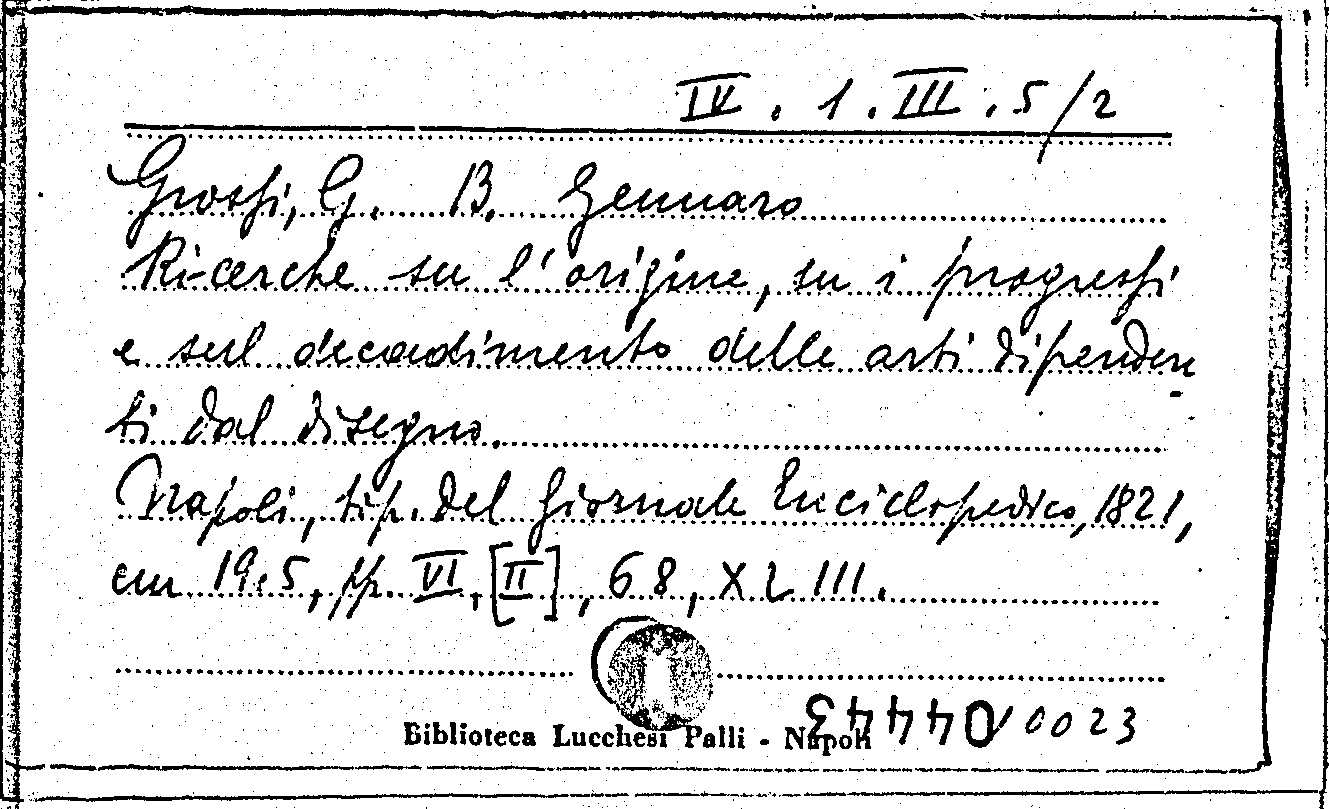 IV. 1. III. 5/2
Grossi, G. B. Gennaro
Ricerche su l'origine, su i progressi
e sul decadimento delle arti dipenden
ti dal disegno.
Napoli, tip. del Giornale Enciclopedico, 1821,
cm 19.5, pp. VI, [II], 68, XLIII.
Biblioteca Lucchesi Palli - Napoli
0023